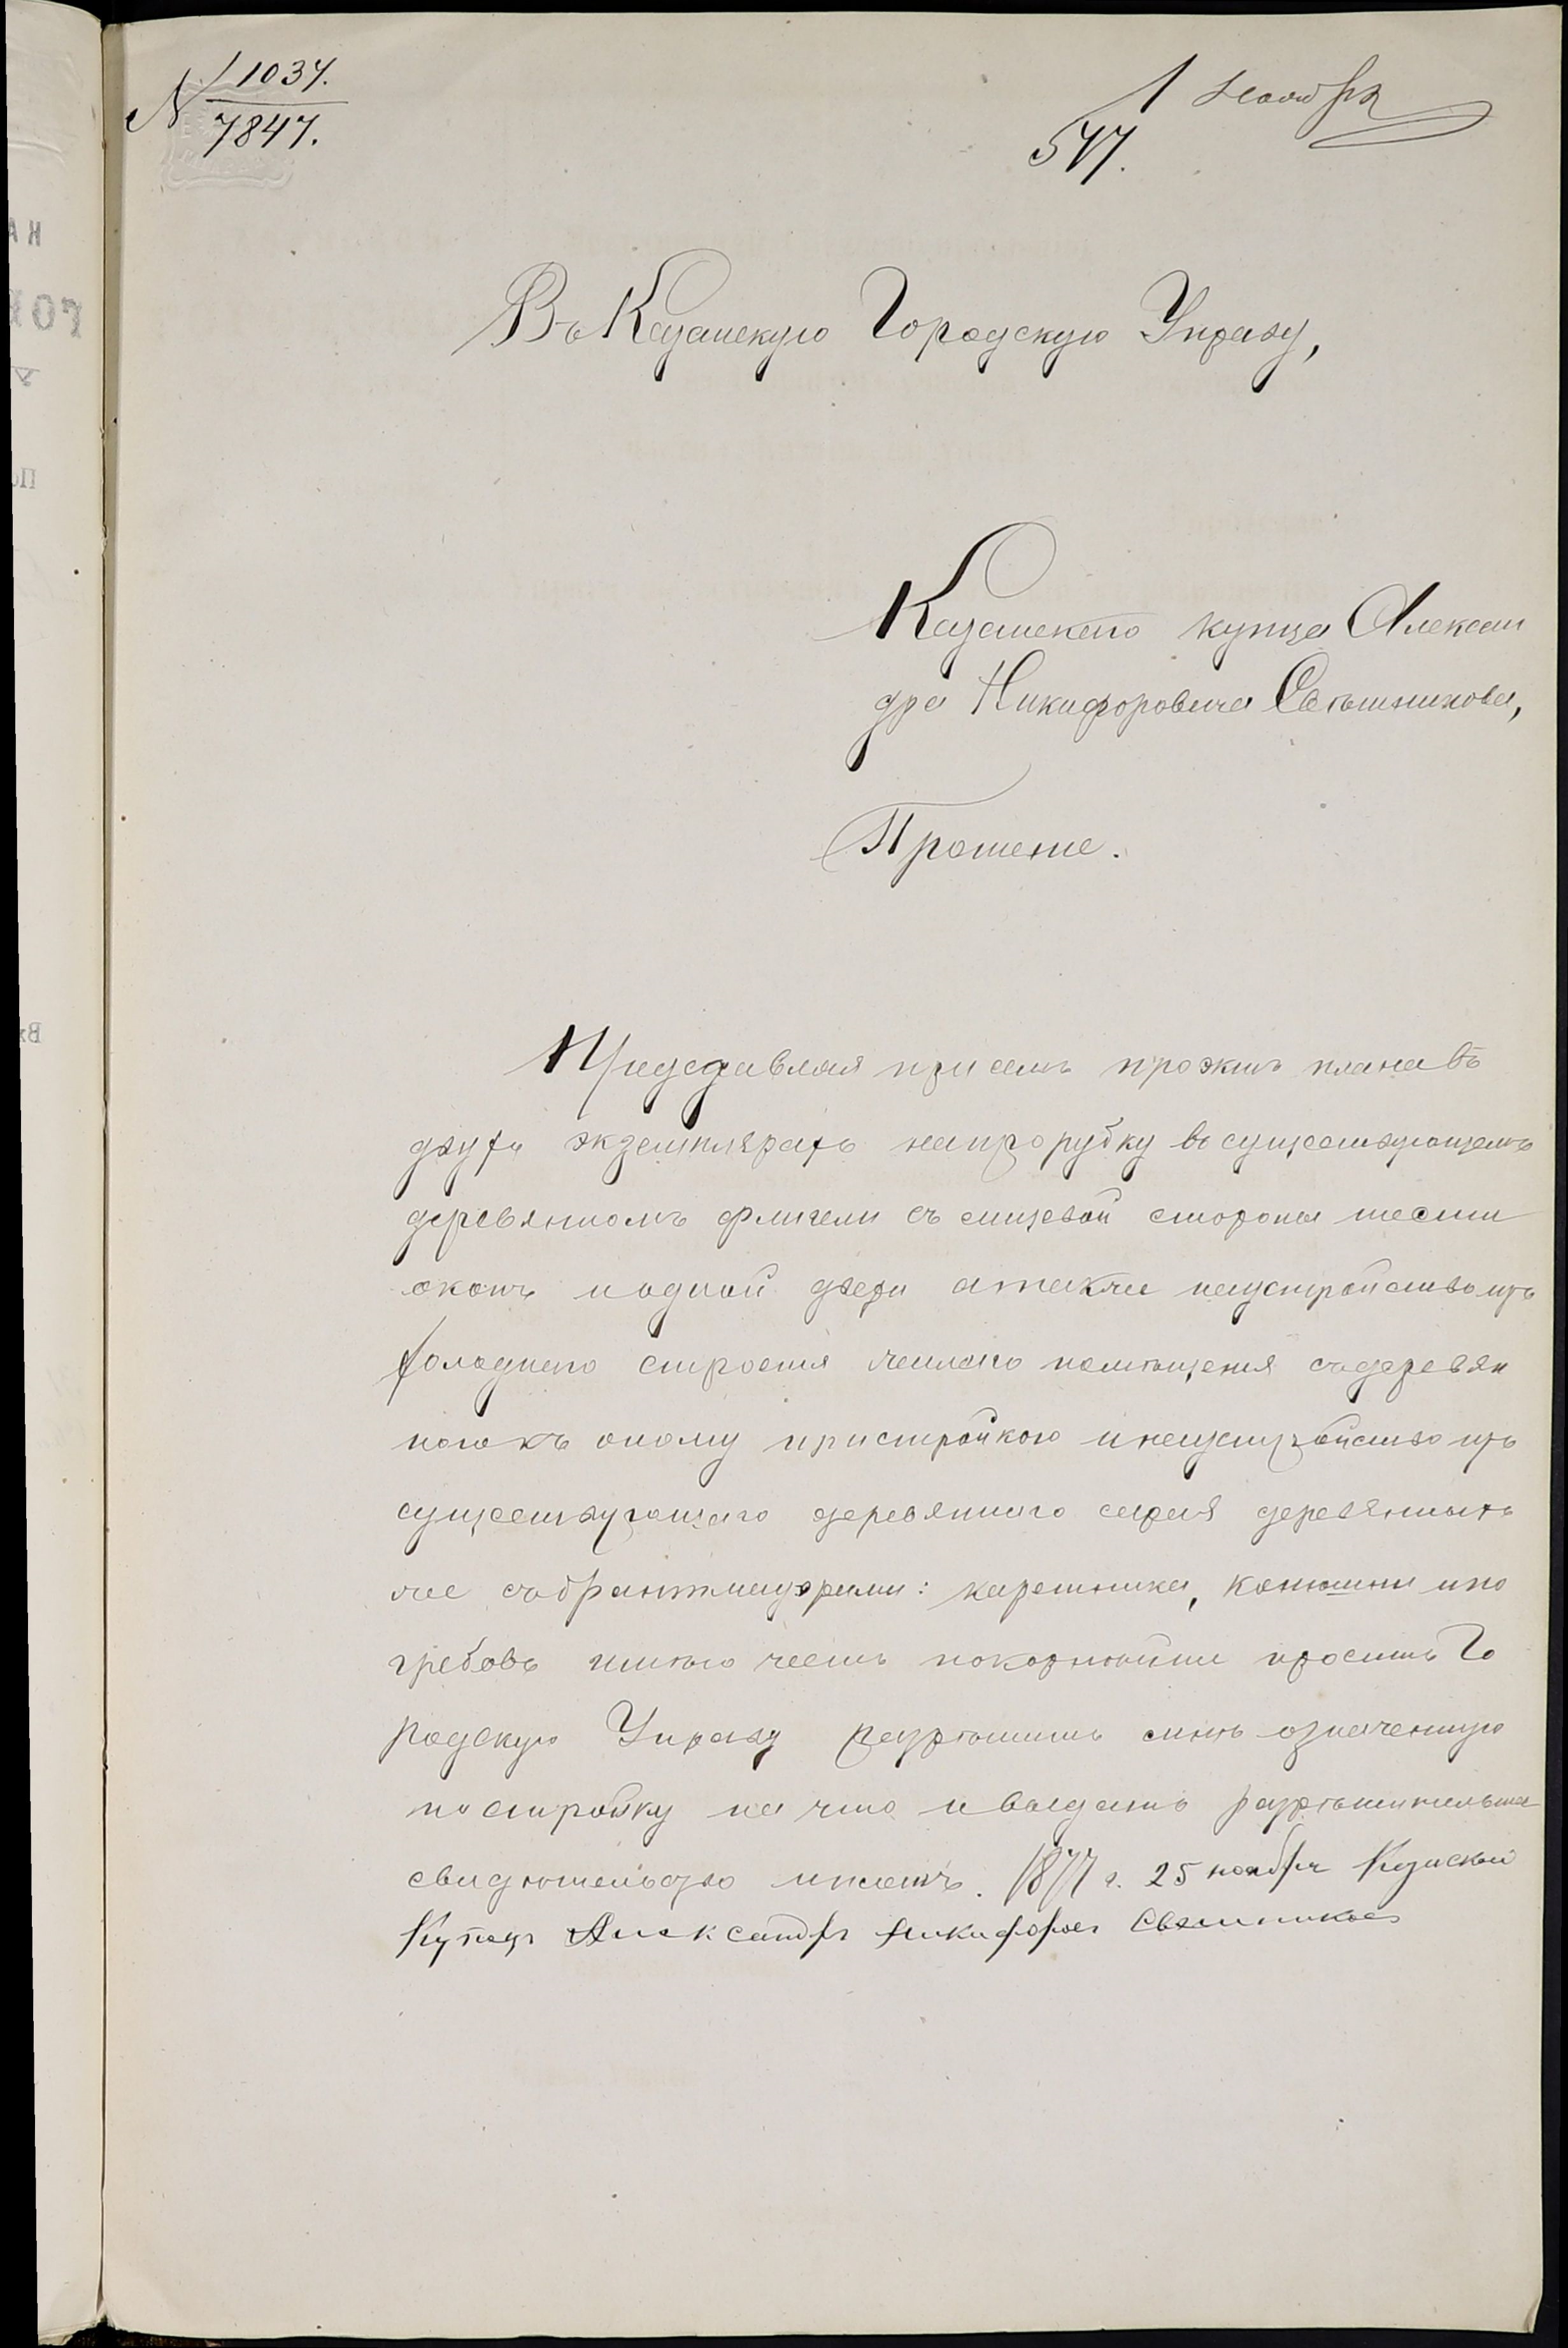 N 1037.
7847.
1 Ноября
577.
Въ Казанскую Городскую Управу,
Казанскаго купца Алексан
дра Никифоровича Свѣшникова,
Прошенiе.
Представляя при семъ проэктъ плана въ
двухъ экземплярахъ на прорубку въ существующемъ
деревянномъ флигели съ лицевой стороны шести
оконъ и одной двери а также на устройство изъ
холоднаго строенiя теплаго помѣщенiя съ деревян
ною къ оному пристройкою и на устройство изъ
существующаго деревяннаго сарая деревянныхъ
же съ брантмаурами: каретника, конюшни и по
гребовъ имѣю честь покорнѣйше просить Го
родскую Управу разрѣшить мнѣ означенную
постройку на что и выдать разрѣшительное
свидѣтельство и планъ. 1877 г. 25 ноября Казанскай
Купецъ Александръ Никифоровъ Свешниковъ